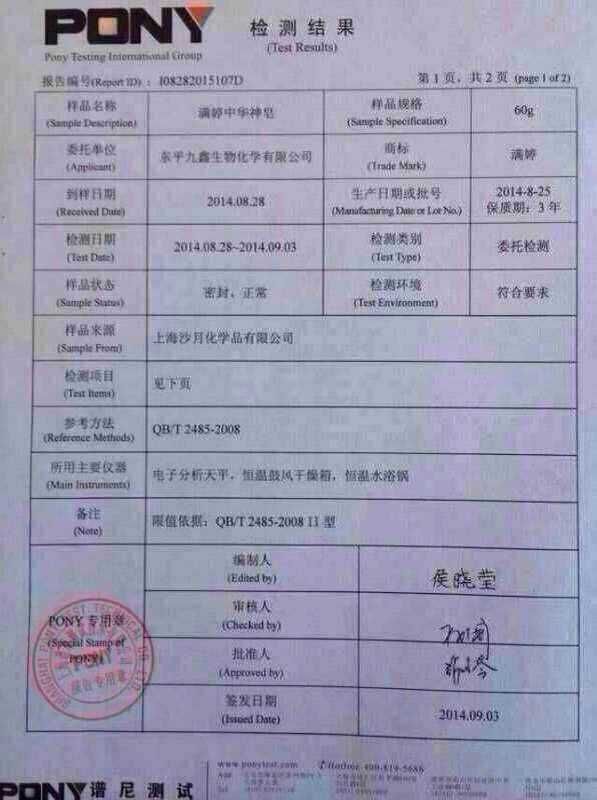 PONY
Pony Testing International Group
检测结果
(Test Results)
报告编号(Report ID)：I08282015107D
第 1 页，共 2 页 (page 1 of 2)
样品名称
(Sample Description)
满婷中华神皂
样品规格
(Sample Specification)
60g
委托单位
(Applicant)
东平九鑫生物化学有限公司
商标
(Trade Mark)
满婷
到样日期
(Received Date)
2014.08.28
生产日期或批号
(Manufacturing Date or Lot No.)
2014-8-25
保质期：3 年
检测日期
(Test Date)
2014.08.28~2014.09.03
检测类别
(Test Type)
委托检测
样品状态
(Sample Status)
密封、正常
检测环境
(Test Environment)
符合要求
样品来源
(Sample From)
上海沙月化学品有限公司
检测项目
(Test Items)
见下页
参考方法
(Reference Methods)
QB/T 2485-2008
所用主要仪器
(Main Instruments)
电子分析天平，恒温鼓风干燥箱，恒温水浴锅
备注
(Note)
限值依据：QB/T 2485-2008 II 型
PONY 专用章
(Special Stamp of
PONY)
PONY
报告专用章
编制人
(Edited by)
侯晓莹
审核人
(Checked by)
批准人
(Approved by)
签发日期
(Issued Date)
2014.09.03
PONY 谱尼测试
www.ponytest.com
Hotline 400-819-5688